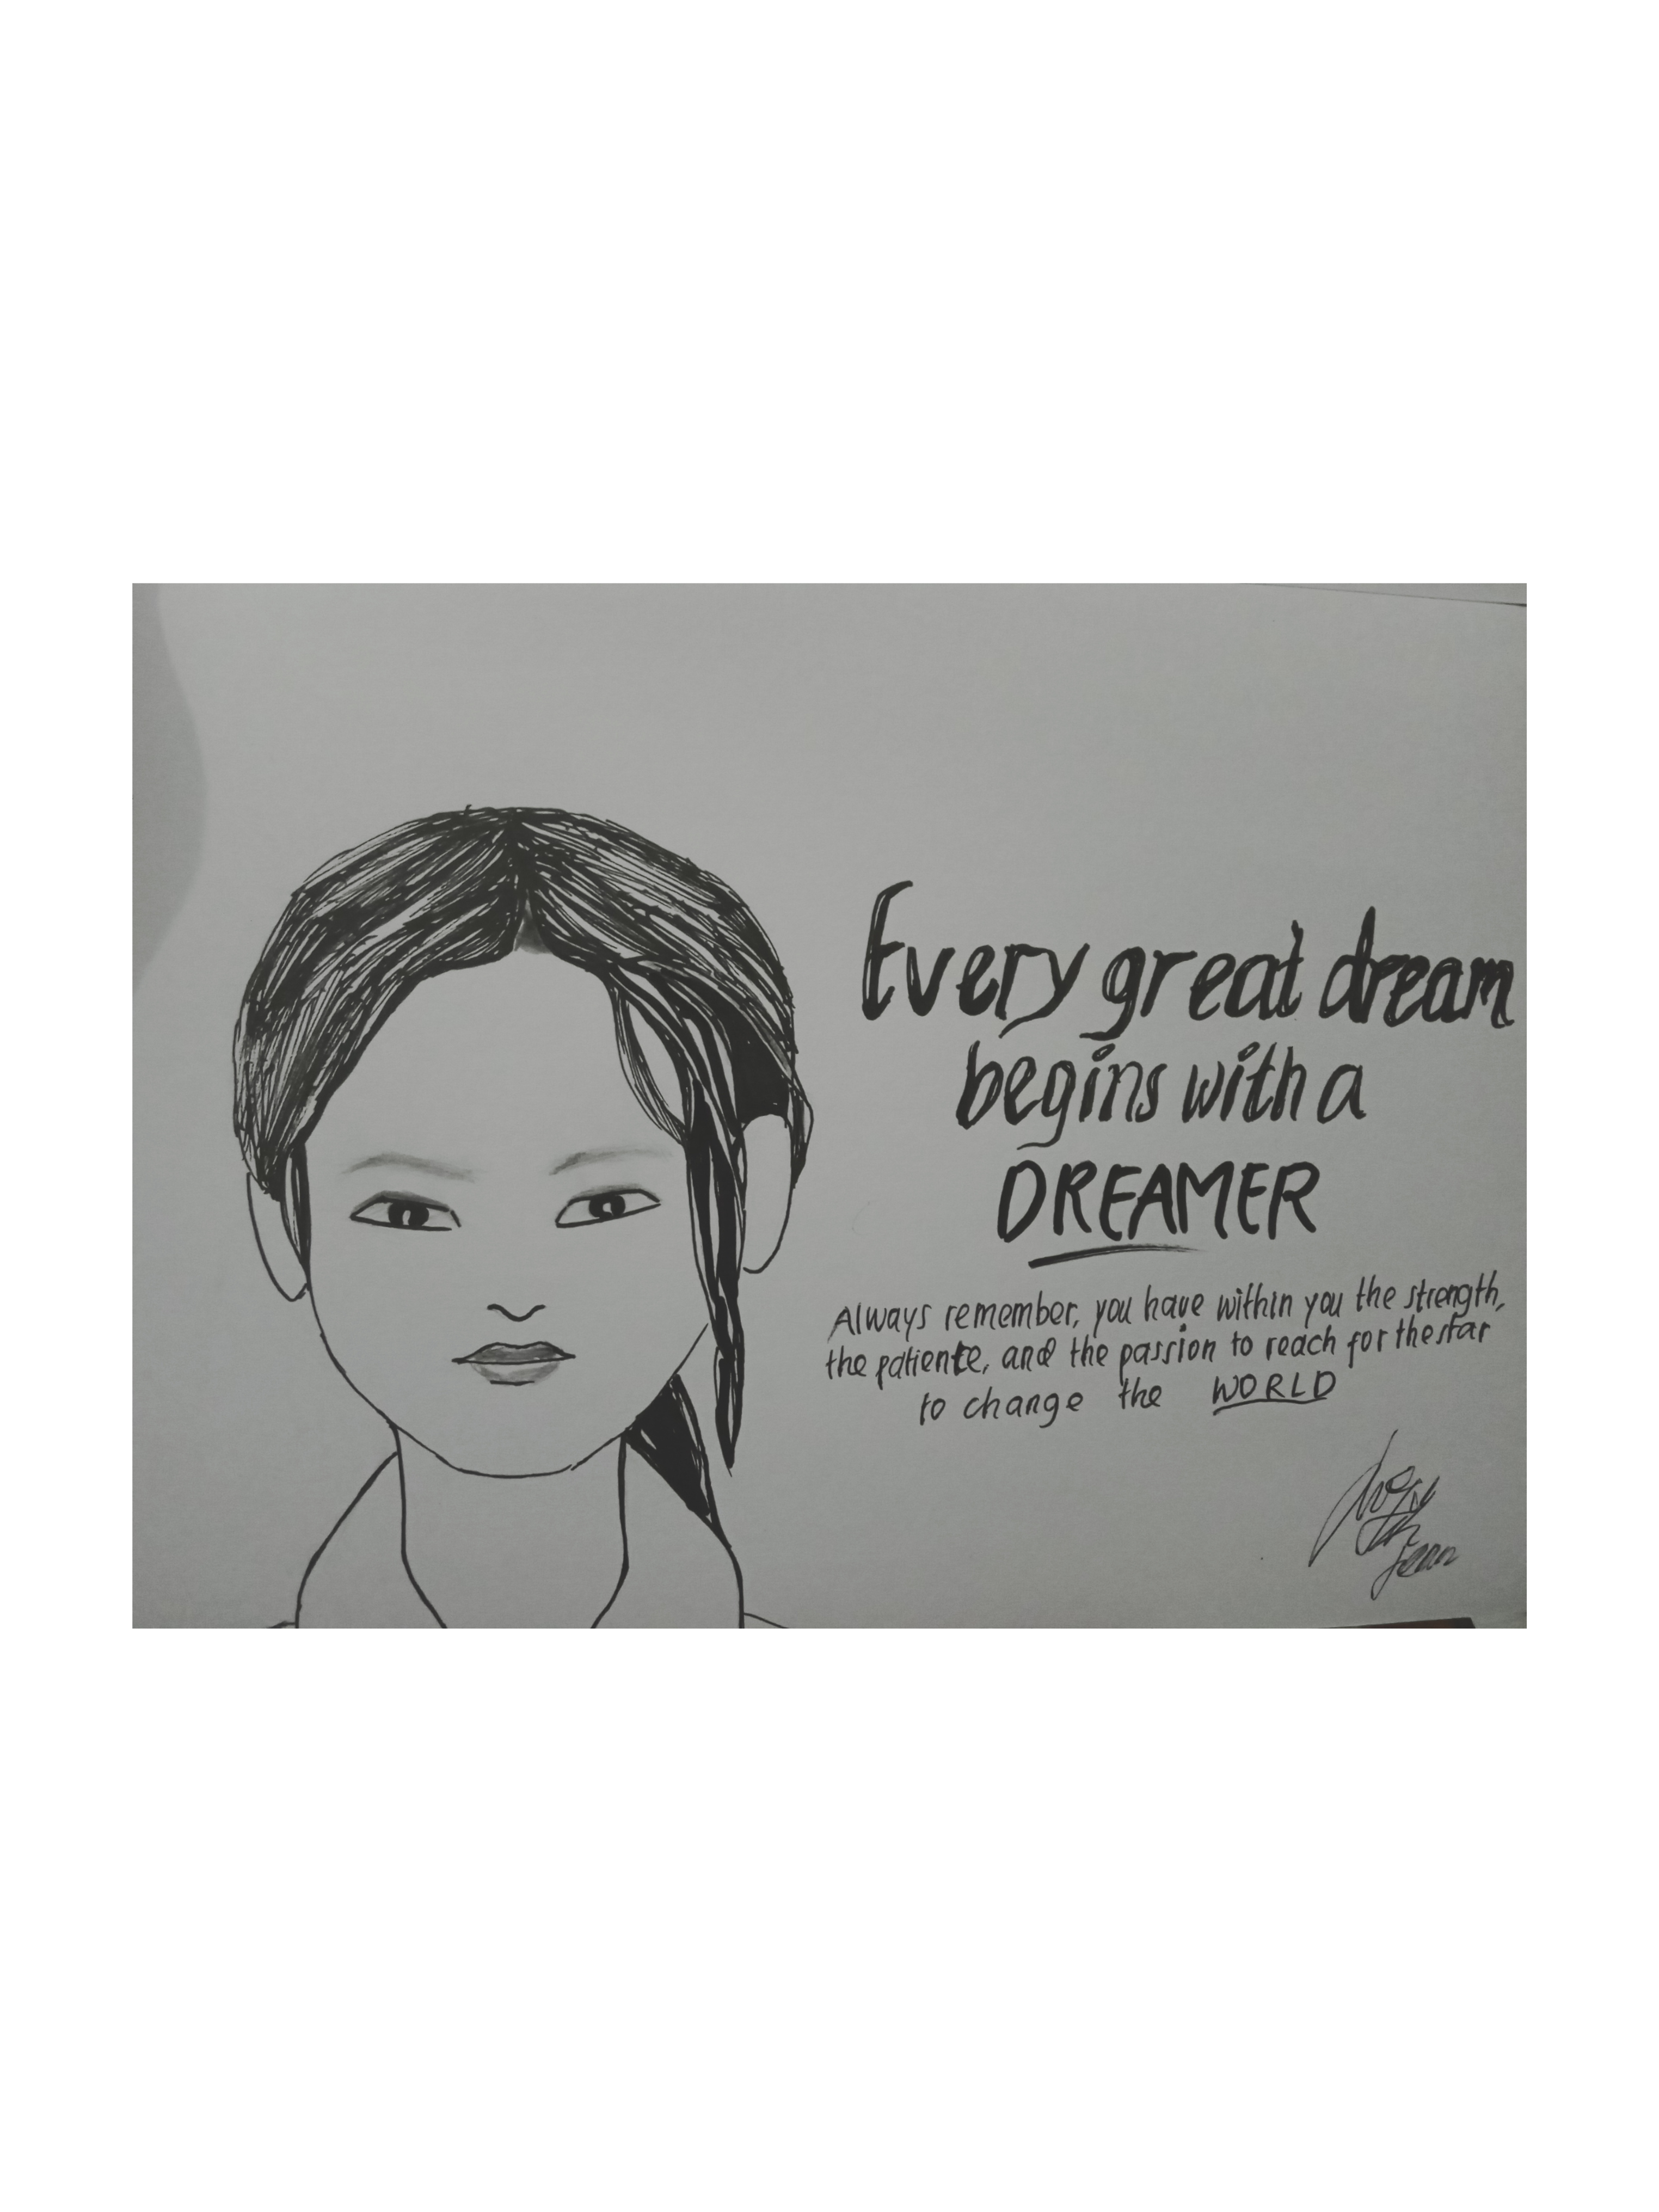 Every great dream
begins with a
DREAMER
Always remember, you have within you the strength,
the patience, and the passion to reach for the star
to change the WORLD